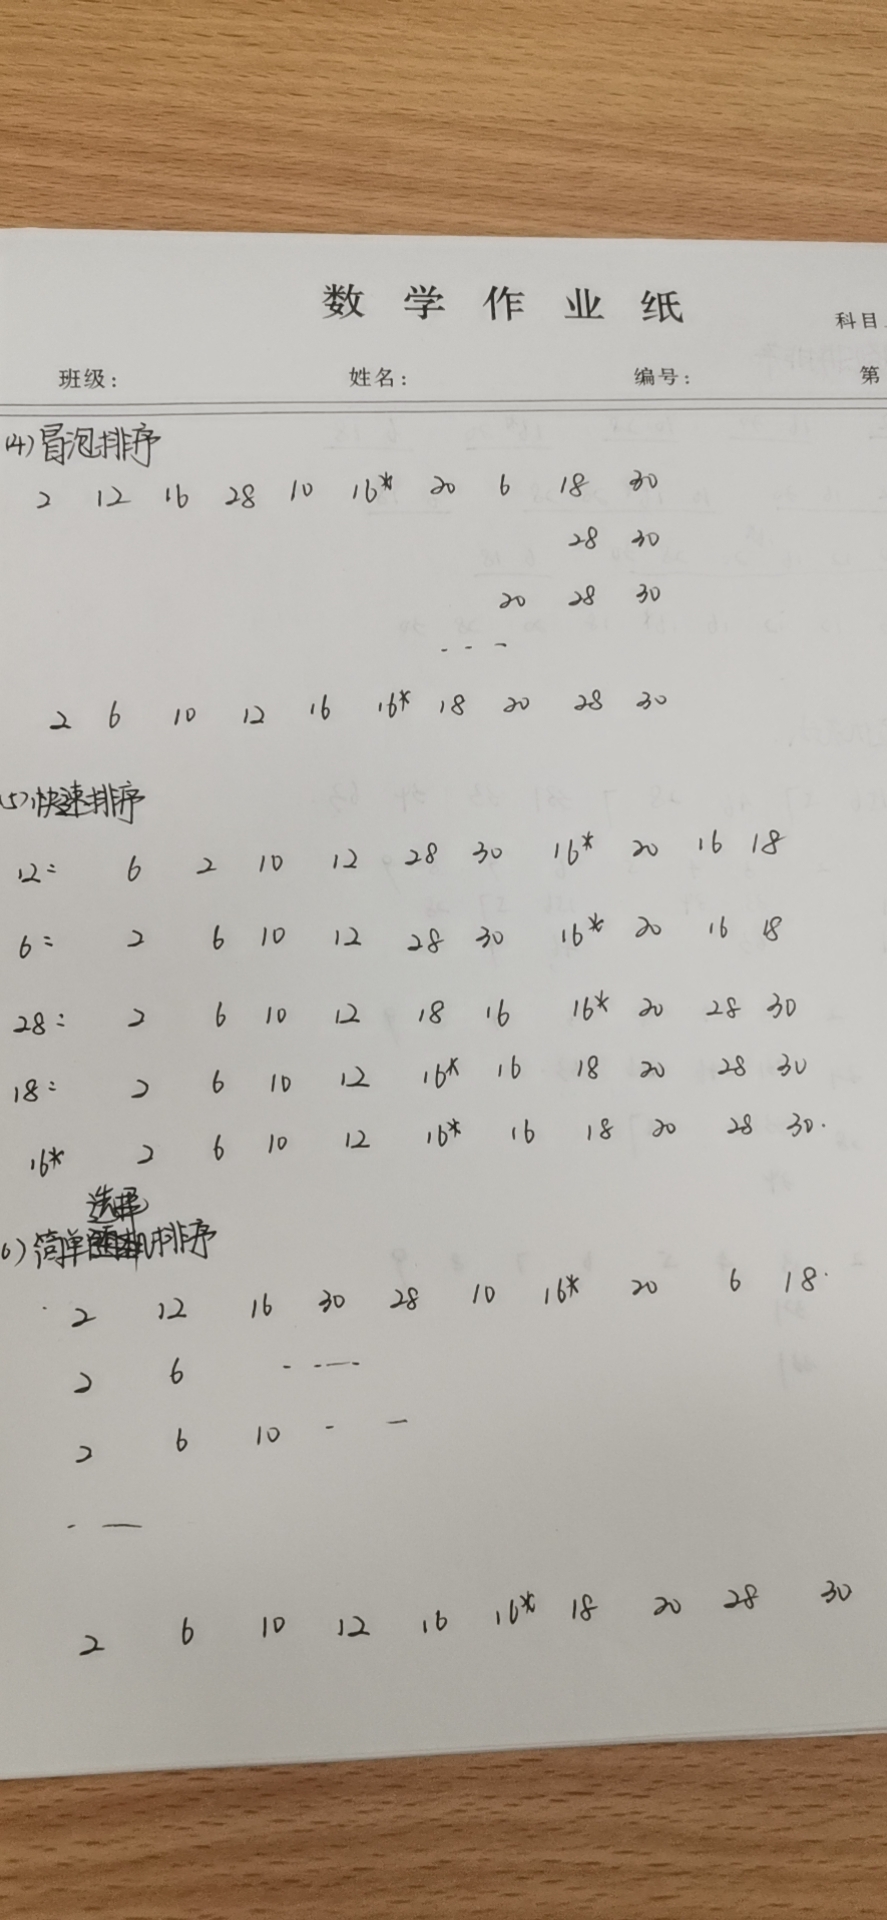 数学作业纸
科目
班级: 姓名: 编号: 第
(4) 冒泡排序
2 12 16 28 10 16* 20 6 18 30
28 30
20 28 30
- - -
2 6 10 12 16 16* 18 20 28 30
(5) 快速排序
12: 6 2 10 12 28 30 16* 20 16 18
6: 2 6 10 12 28 30 16* 20 16 18
28: 2 6 10 12 18 16 16* 20 28 30
18: 2 6 10 12 16* 16 18 20 28 30
16* 2 6 10 12 16* 16 18 20 28 30.
选择
6) 简单排序
2 12 16 30 28 10 16* 20 6 18.
2 6 - - - -
2 6 10 - —
- —
2 6 10 12 16 16* 18 20 28 30